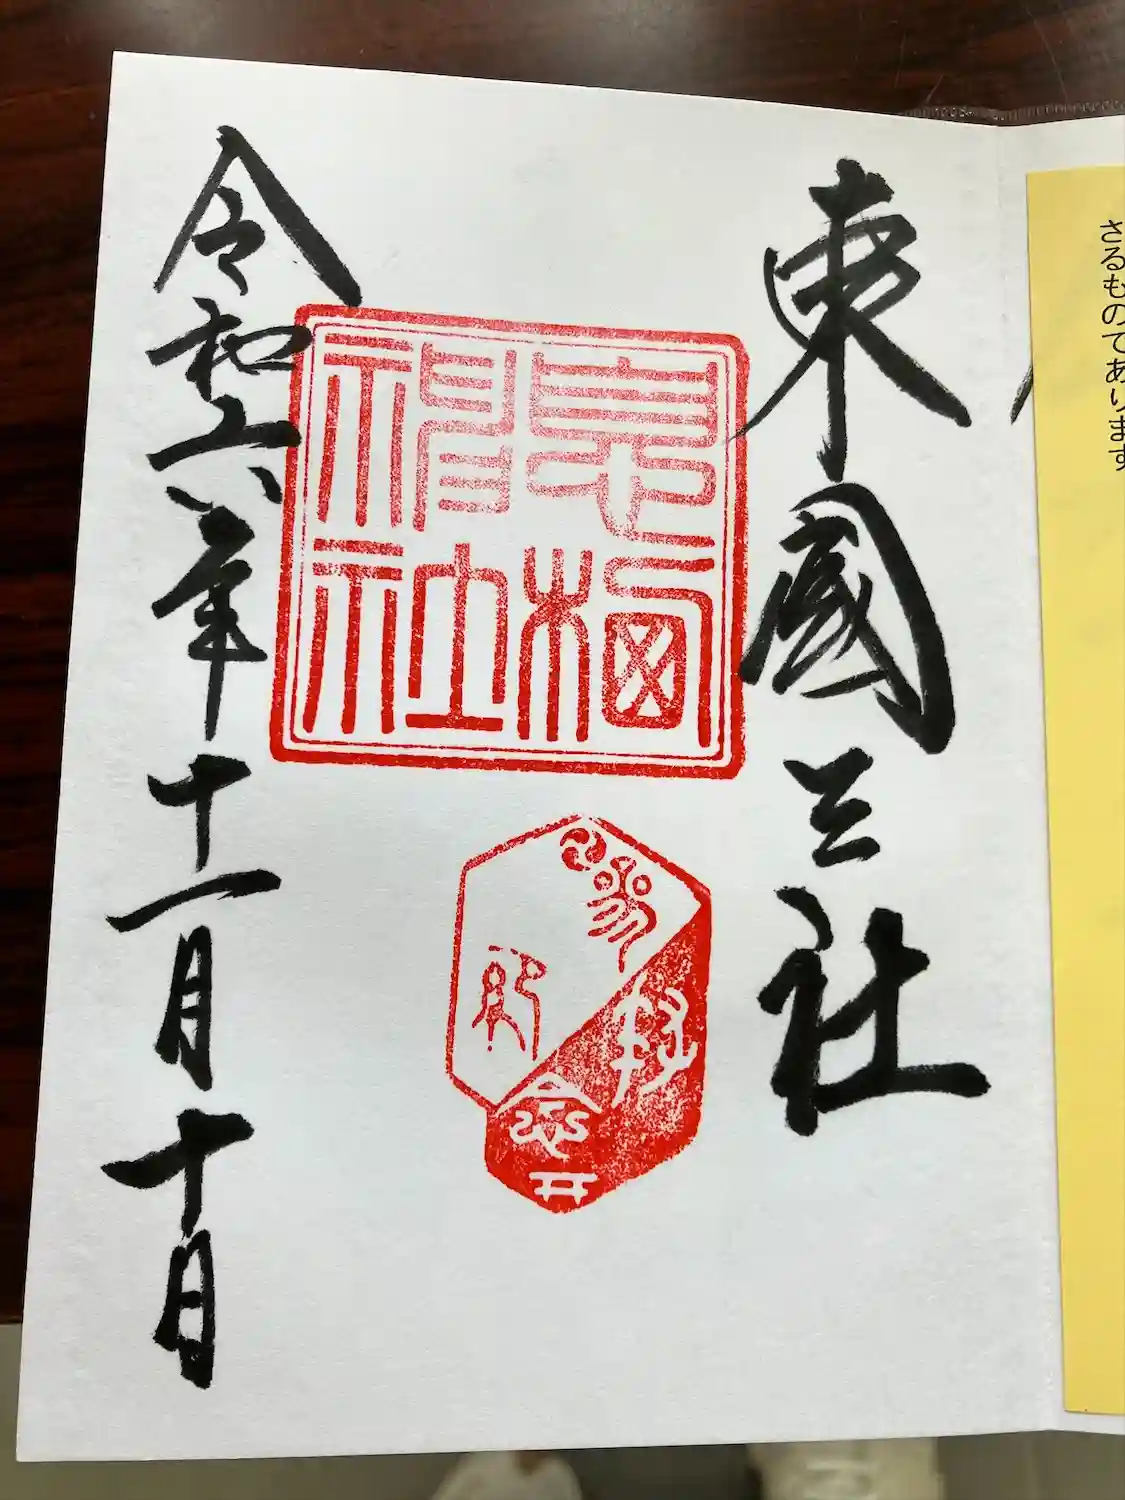 さるものであります
東國三社
息栖神社
参拝
記念
令和六年十一月十日